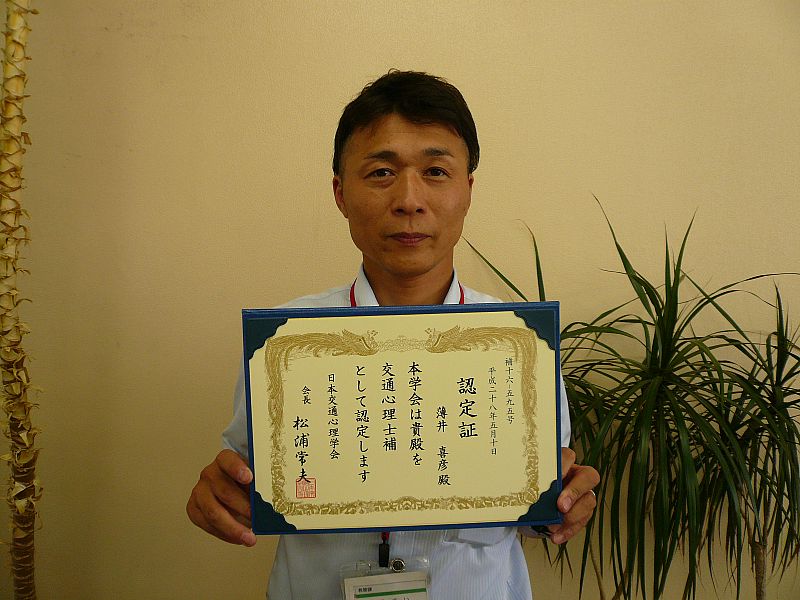 補十六-五九五号
平成二十八年五月十日
認定証
薄井 喜彦 殿
本学会は貴殿を
交通心理士補
として認定します
日本交通心理学会
会長 松浦常夫